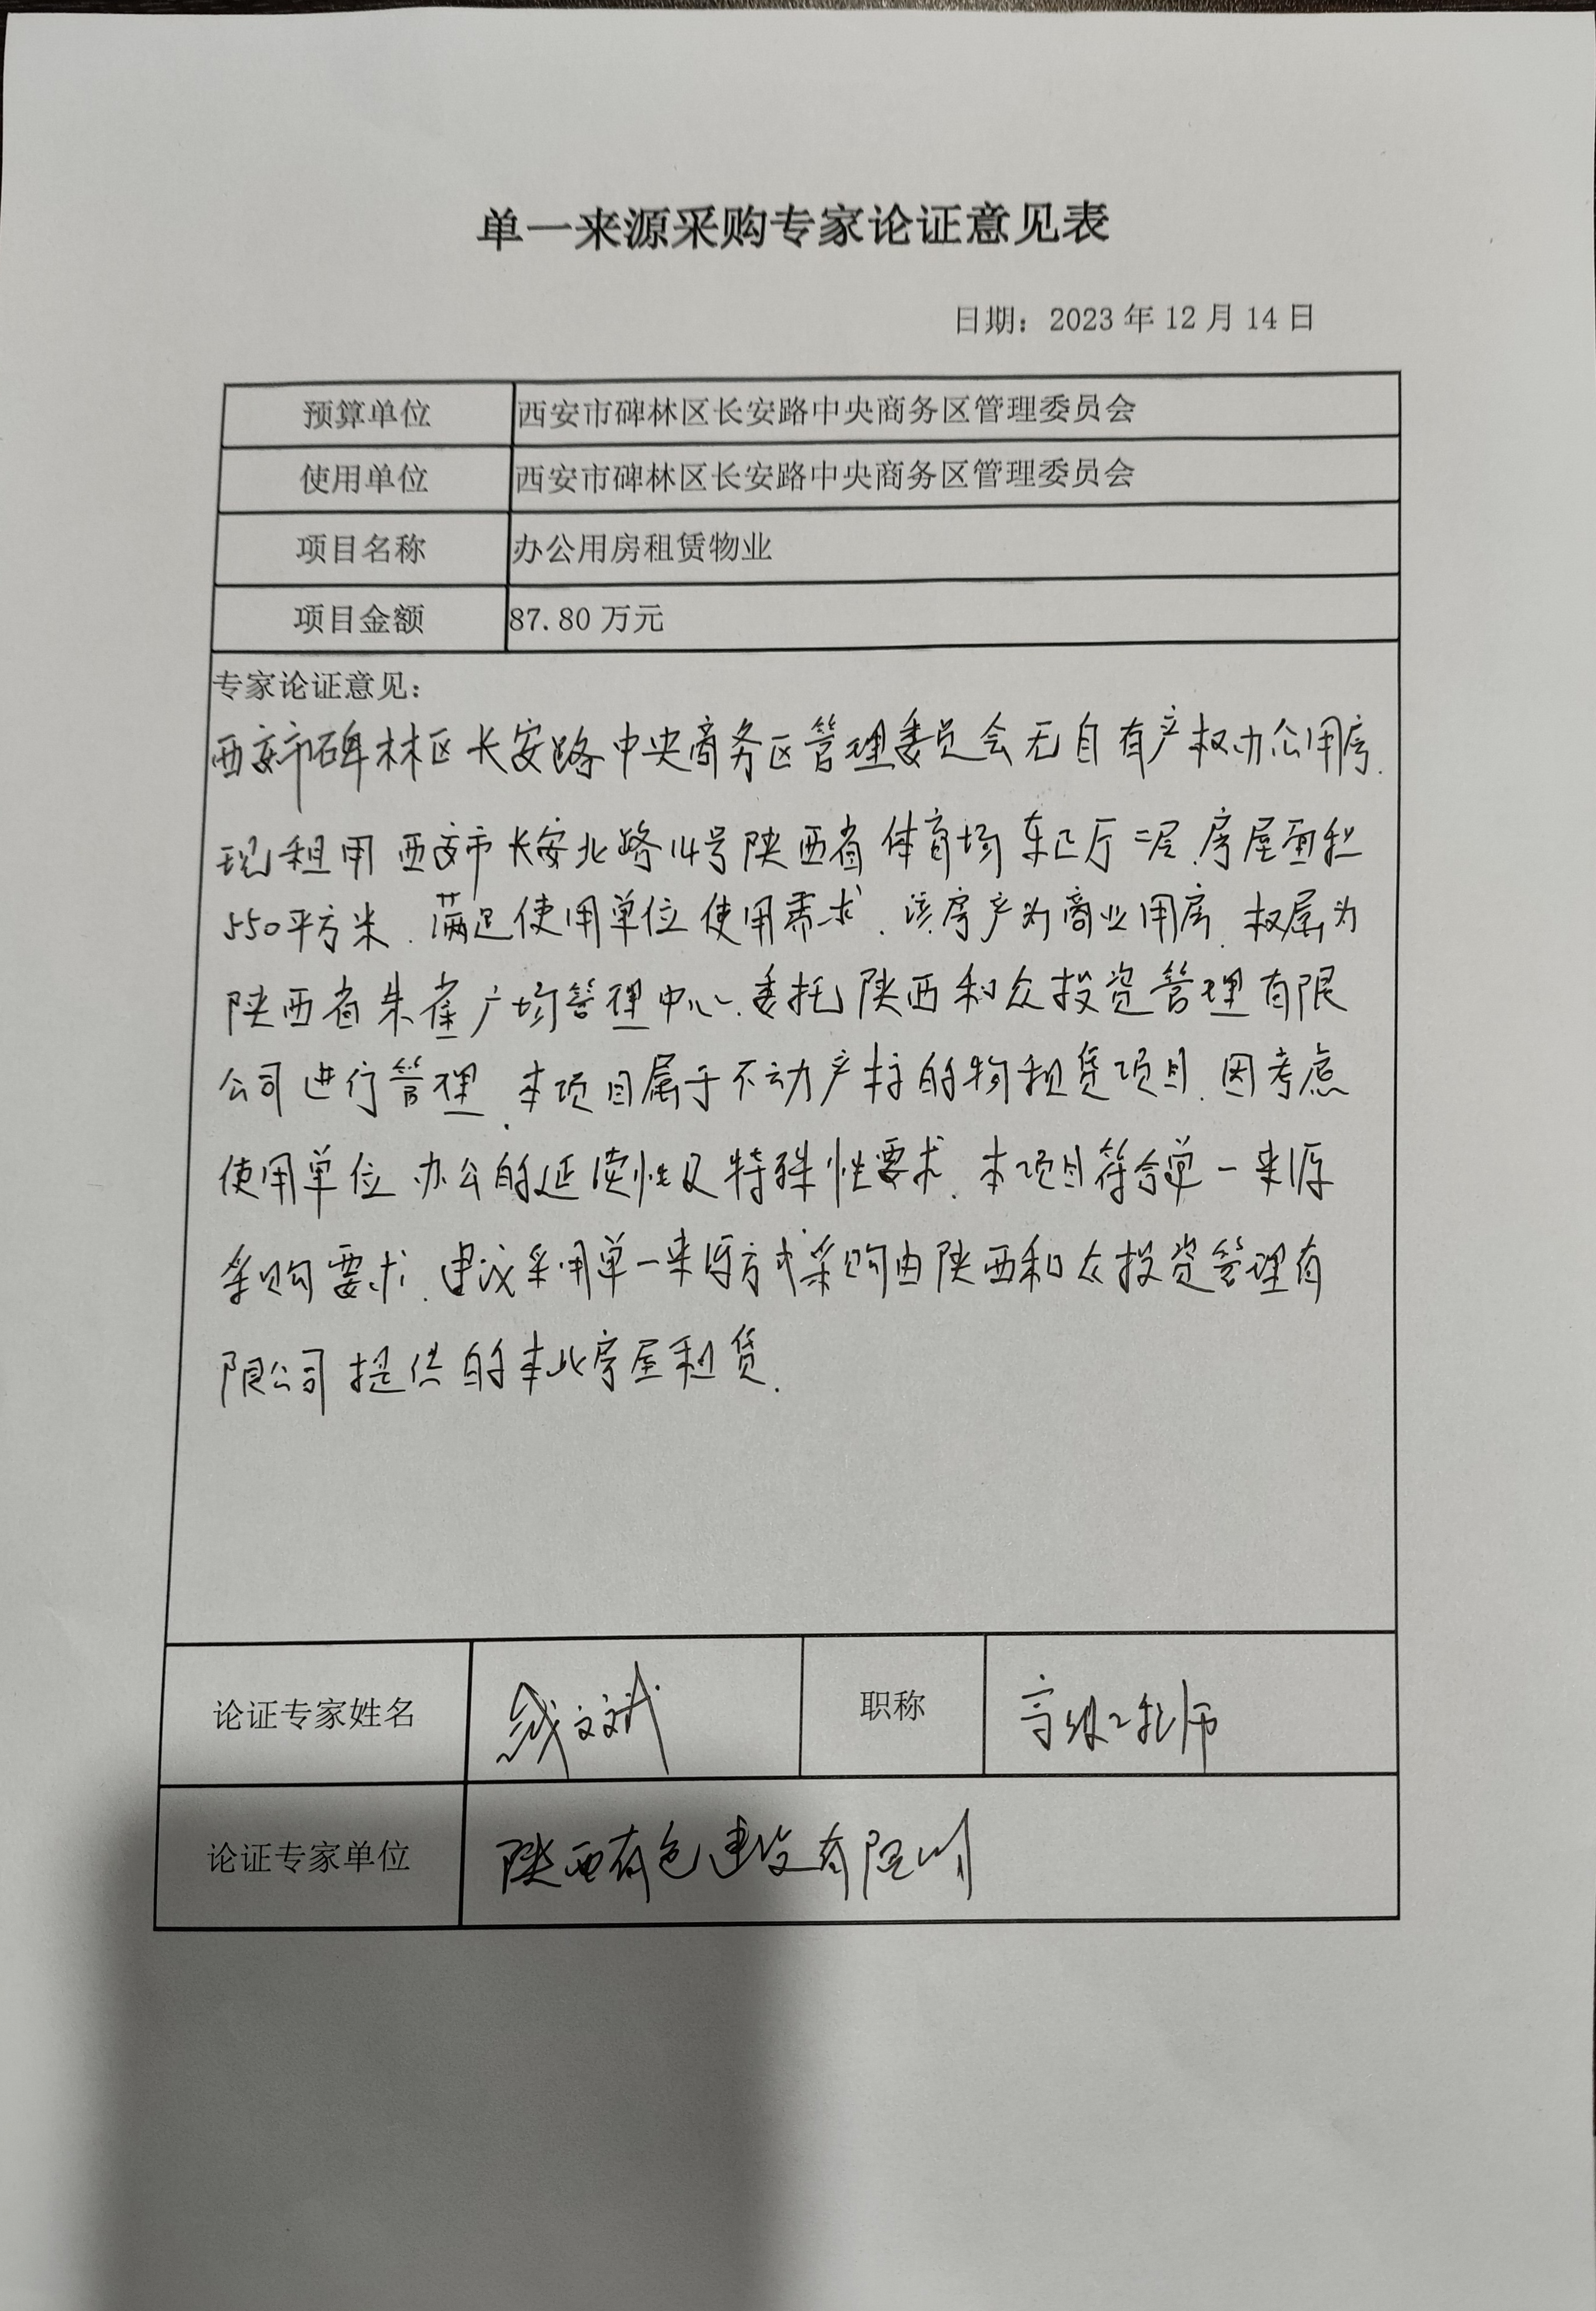 单一来源采购专家论证意见表
日期：2023年12月14日
预算单位 西安市碑林区长安路中央商务区管理委员会
使用单位 西安市碑林区长安路中央商务区管理委员会
项目名称 办公用房租赁物业
项目金额 87.80万元
专家论证意见：
西安市碑林区长安路中央商务区管理委员会无自有产权办公用房.
现租用西安市长安北路14号陕西省体育场东 厅二层.房屋面积
550平方米.满足使用单位使用需求.该房产为商业用房.权属为
陕西省朱雀广场管理中心.委托陕西和众投资管理有限
公司进行管理.本项目属于不动产标的物租赁项目.因考虑
使用单位办公的延续性及特殊性要求.本项目符合单一来源
采购要求.建议采用单一来源方式采购由陕西和众投资管理有
限公司提供的本此房屋租赁.
论证专家姓名 文斌 职称 高级工程师
论证专家单位 陕西有色建设有限公司